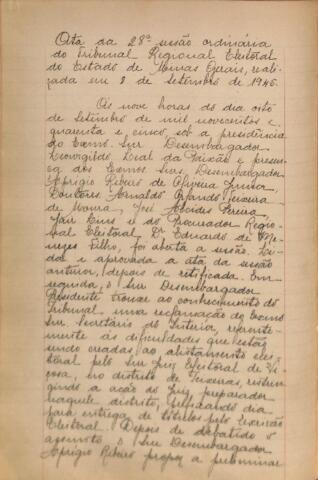 Ata da 28ª sessão ordinária
do Tribunal Regional Eleitoral
do Estado de Minas Gerais, reali-
zada em 8 de setembro de 1945.
Ás nove horas do dia oito
de setembro de mil novecentos e
quarenta e cinco, sob a presidência
do Exmo. Snr. Desembargador
Leovigildo Leal da Paixão e presen-
ça dos Exmos. Snrs. Desembargador
Aprigio Ribeiro de Oliveira Junior,
Doutores Arnaldo Teixeira
de Moura, José Alcides Pereira,
Jair Lins e do Procurador Regio-
nal Eleitoral, Dr. Eduardo de Me-
nezes Filho, foi aberta a sessão. Li-
da e aprovada a ata da sessão
anterior, depois de retificada. Em
seguida, o Snr. Desembargador
Presidente trouxe ao conhecimento do
Tribunal uma reclamação do Exmo
Snr. Secretário do Interior,
mente ás dificuldades que estão
sendo creadas, ao alistamento elei-
toral pelo Snr. Juiz Eleitoral de Vi-
çosa, no distrito de Teixeiras, restrin-
gindo a ação do Juiz preparador
naquele distrito, dia
para entrega de titulos pelo Escrivão
Eleitoral. Depois de debatido o
assunto, o Snr. Desembargador
Aprigio Ribeiro propoz a preliminar